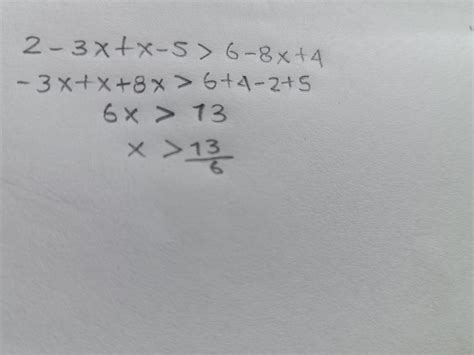 2 - 3x + x - 5 > 6 - 8x + 4
- 3x + x + 8x > 6 + 4 - 2 + 5
6x > 13
x > 13/6